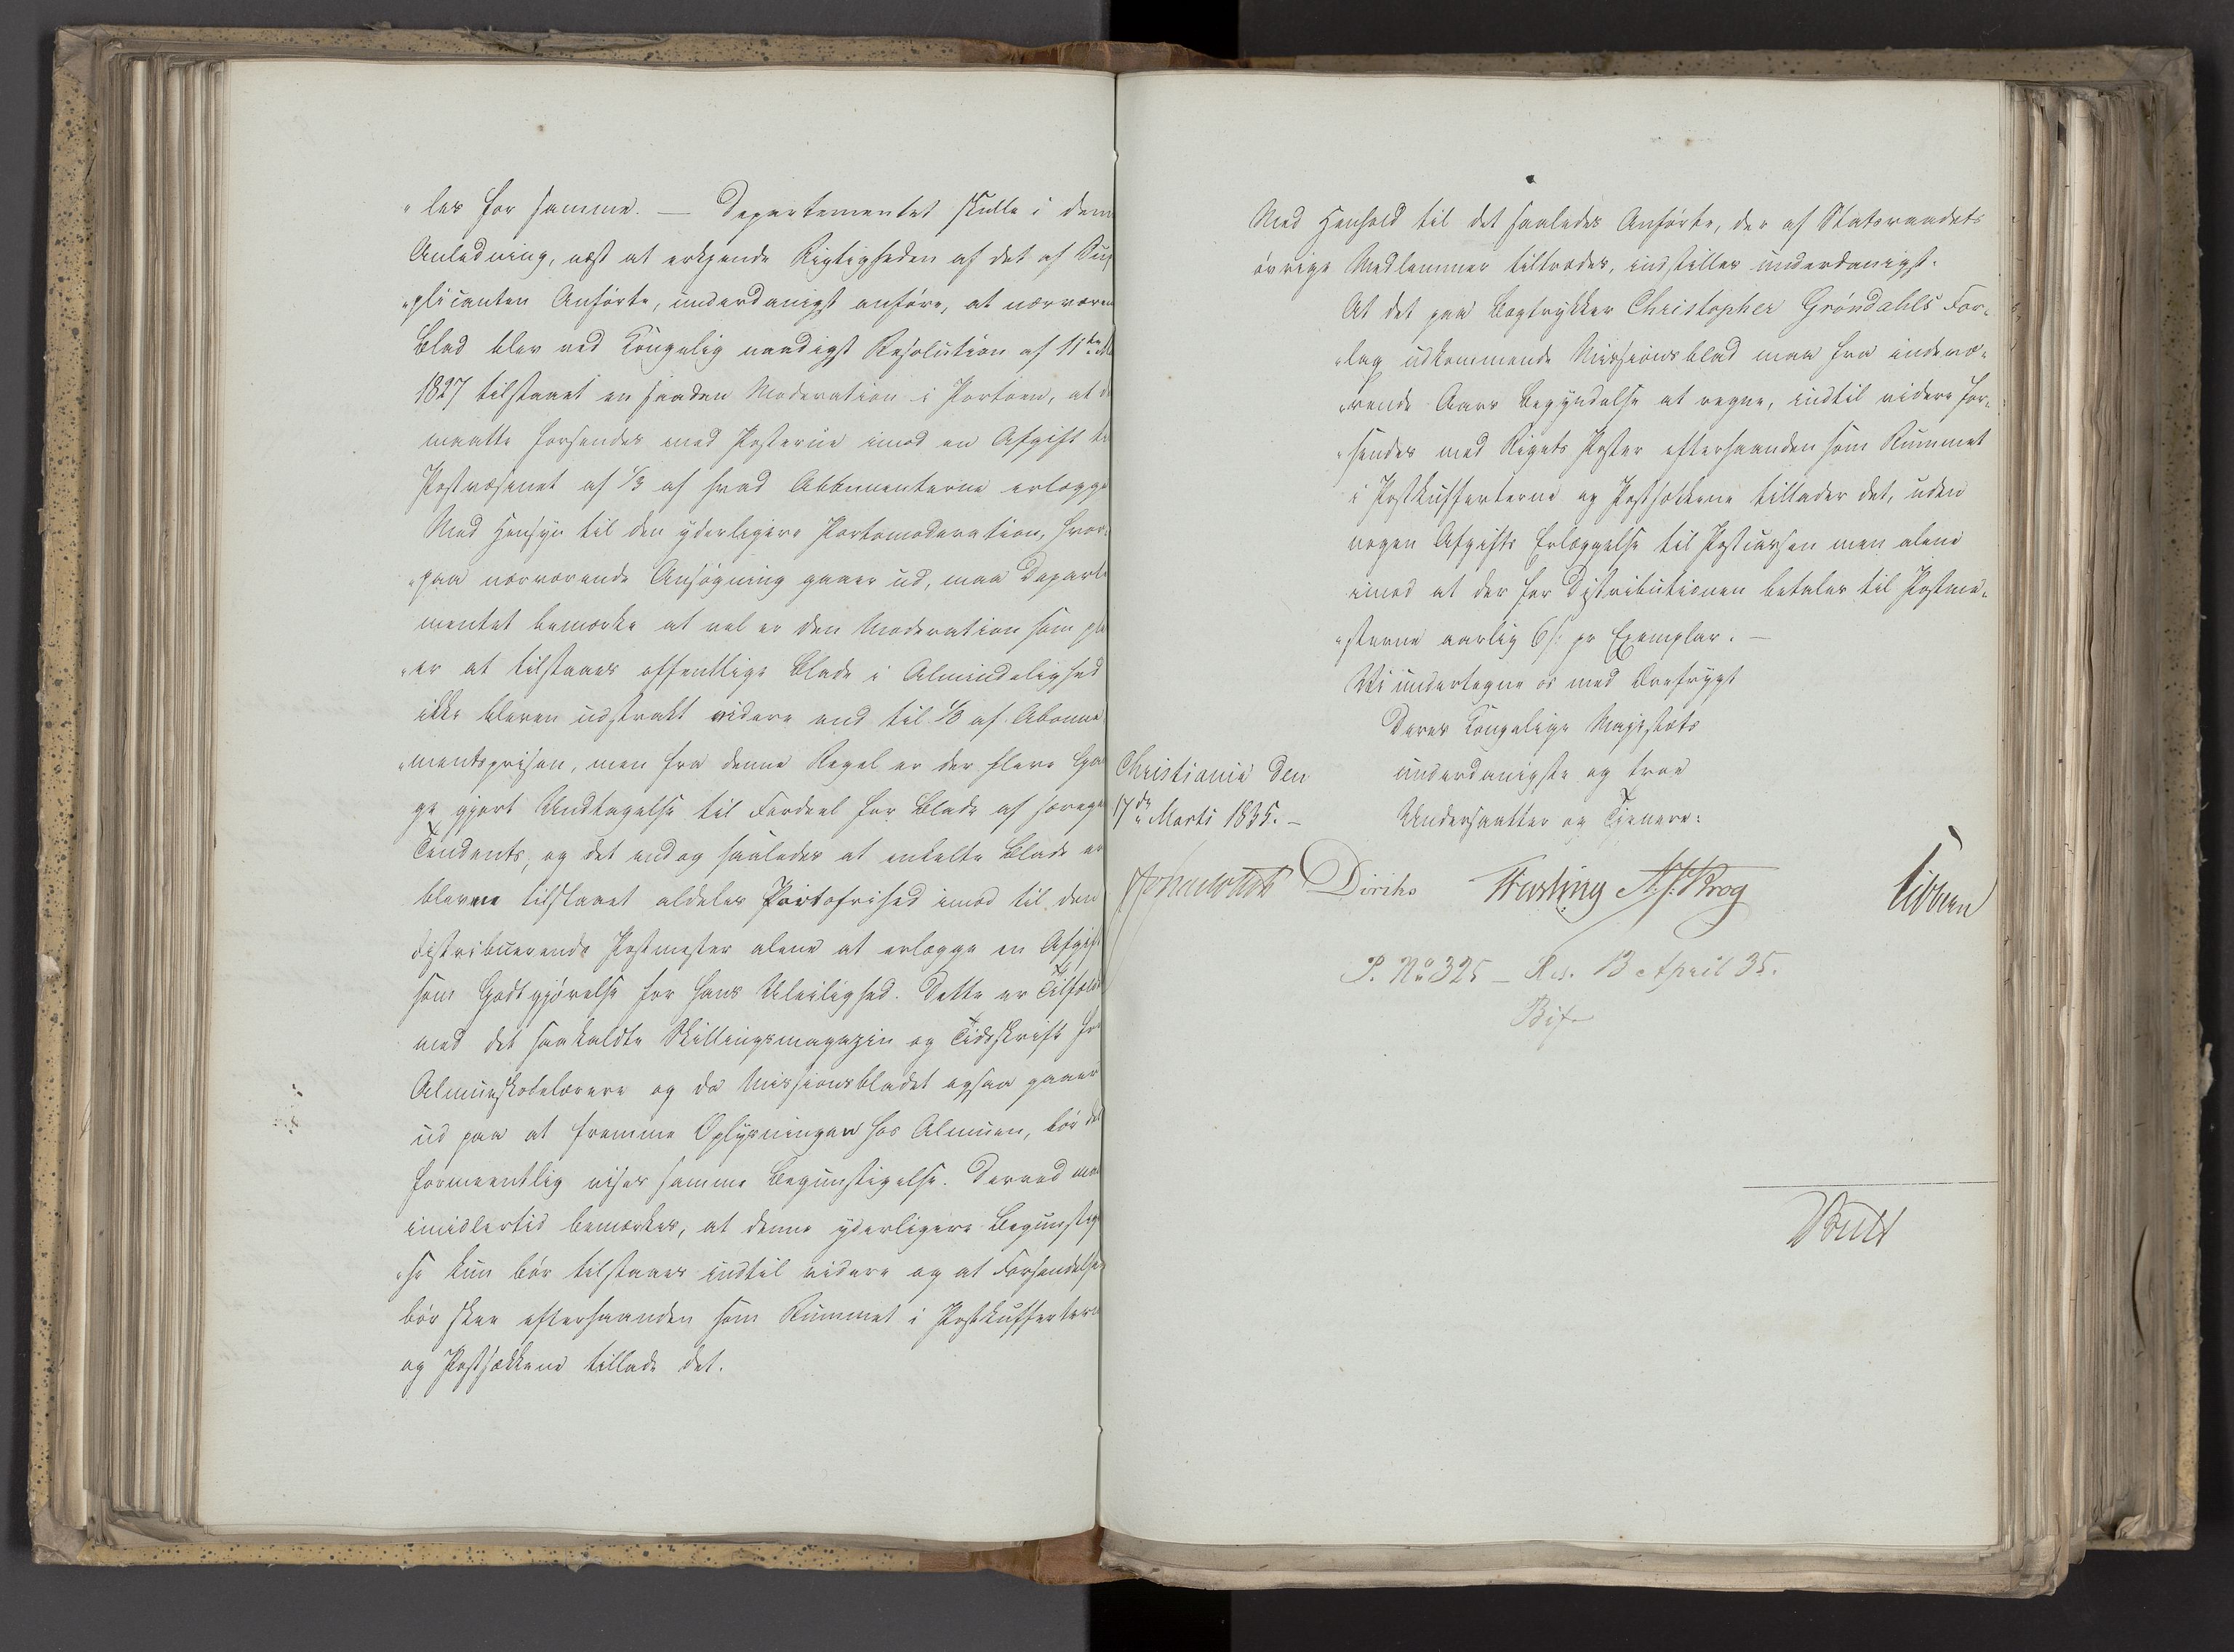 „les for samme. — Departementet skulle i den
Anledning, næst at erkjende Rigtigheden af det af Sup
„plicanten Anførte, underdanigst anføre, at nærværen
Blad blev ved Kongelig naadigst Resolution af 11te
1827 tilstaaet en saadan Moderation i Portoen, at d
maatte forsendes med Posterne imod en Afgift t
Postvæsenet af 1/3 af hvad Abbonenterne erlægge
Med Hensyn til den yderligere Portomoderation, hvor„
„paa nærværende Ansøgning gaaer ud, maa Departe
mentet bemærke at vel er den Moderation som ple
„er at tilstaaes offentlige Blade i Almindelighed
ikke bleven udstrakt videre end til 1/3 af Abonne
„mentsprisen, men fra denne Regel er der flere Gan
ge gjort Undtagelse til Fordeel for Blade af særegen
Tendents, og det endog saaledes at enkelte Blade er
blevne tilstaaet aldeles Portofrihed imod til den
distribuerende Postmester alene at erlægge en Afgift
som Godtgjørelse for hans Uleilighed. Dette er Tilfældet
med det saakaldte Skillingsmagazin og Tidsskrift for
Almueskolelærere og da Missionsbladet ogsaa gaaer
ud paa at fremme Oplysningen hos Almuen, bør det
formeentlig vises samme Begunstigelse. Derved maa
imidlertid bemærkes, at denne yderligere Begunstigel
„se kun bør tilstaaes indtil videre og at Forsendelsen
bør skee efterhaanden som Rummet i Postkufferterne
og Postsækkene tillade det.
Med Henhold til det saaledes Anførte, der af Statsraadets
øvrige Medlemmer tiltrædes, indstilles underdanigst:
At det paa Bogtrykker Christopher Grøndahls For„
„lag udkommende Missionsblad maa fra indevæ„
„rende Aars Begyndelse at regne, indtil videre for„
„sendes med Rigets Poster efterhaanden som Rummet
i Postkufferterne og Postsækkene tillader det, uden
nogen Afgifts Erlæggelse til Postcassen men alene
imod at der for Distributionen betales til Postme„
„sterne aarlig 6 s: pr Exemplar. —
Vi undertegne os med Ærefrygt
Deres Kongelige Majestæts
underdanigste og troe
Undersaatter og Tjenere:
Christiania den
17de Marts 1835. —
Diriks Fasting Krog
Vibben
P. No 325 — Res. 13 April 35.
Bif